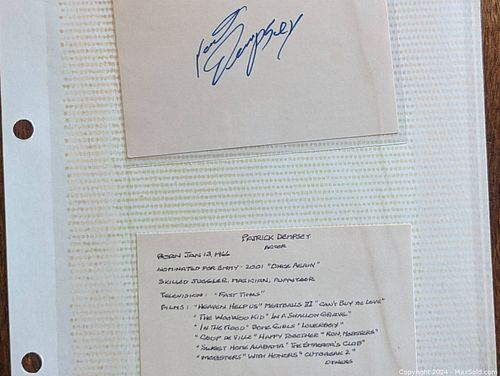 Dempsey
PATRICK DEMPSEY
ACTOR
BORN JAN 13, 1966
NOMINATED FOR EMMY - 2001 "ONCE AGAIN"
SKILLED JUGGLER, MAGICIAN, PUPPETEER
TELEVISION: "FAST TIMES"
FILMS: "HEAVEN HELP US" MEATBALLS III" "CAN'T BUY ME LOVE"
"THE WOO WOO KID" IN A SHALLOW GRAVE"
"IN THE MOOD" SOME GIRLS" "LOVERBOY"
"COUP DE VILLE" HAPPY TOGETHER" "RUN, MOBSTERS"
"SWEET HOME ALABAMA" THE EMPEROR'S CLUB"
"MOBSTERS" WITH HONORS" OUTBREAK 2"
OTHERS
Copyright © 2024 - MaxSold.com